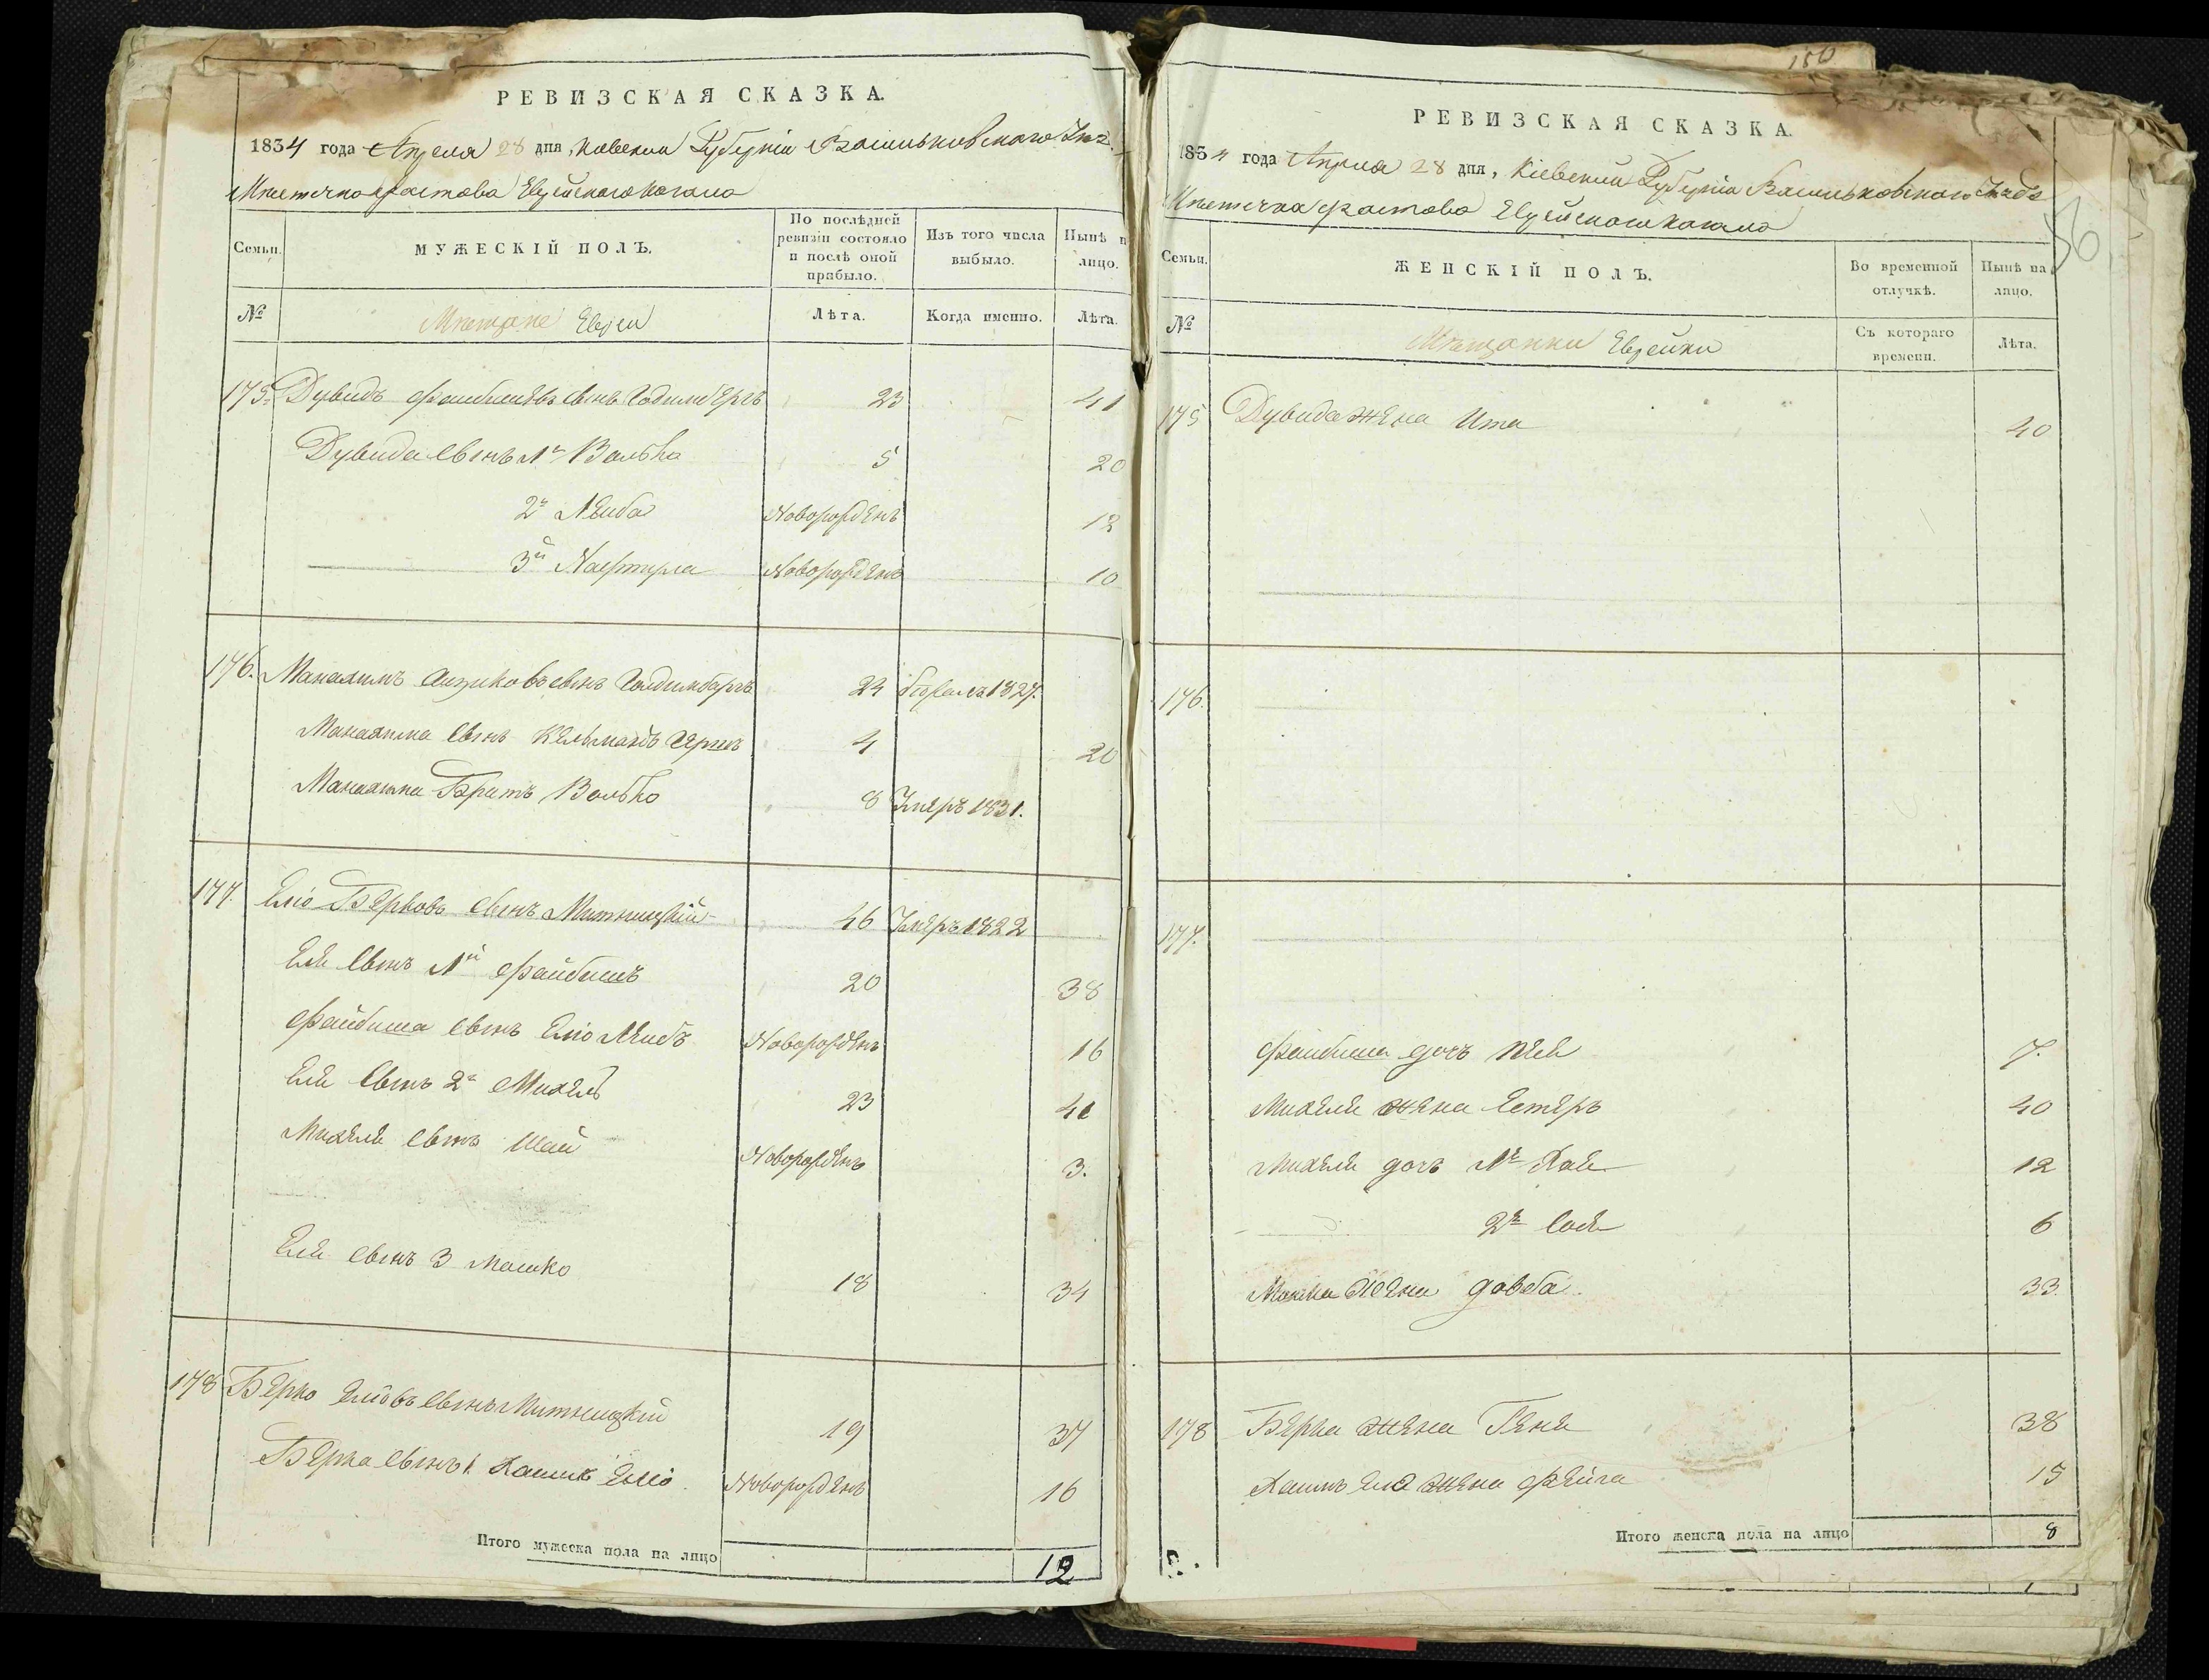 РЕВИЗСКАЯ СКАЗКА.
1834 года Апреля 28 дня, Киевской Губерніи Васильковского
Местечка Фастова Еврейского Кагала
Семьи.
МУЖЕСКІЙ ПОЛЪ.
По послѣдней ревизіи состояло и послѣ оной прибыло.
Изъ того числа выбыло.
Нынѣ н лицо.
№
Мещане Евреи
Лѣта.
Когда именно.
Лѣта.
175. Дувидъ сынъ 23 41
Дувида сынъ 1й Волько 5 20
2й Лейба Новорожденъ 12
3й Новорожденъ 10
176. Манахимъ сынъ 24 1827.
Манахима сынъ Кельманъ Гершъ 4 20
Манахима Братъ Волько 8 Умеръ 1831.
177. Еліо Берковъ сынъ Митницкій 46 Умеръ 1822
Еліи сынъ 1й Файбишъ 20 38
Файбиша сынъ Еліо Лейбъ Новорожденъ 16
Еліи сынъ 2й Михель 23 41
Михеля сынъ Шая Новорожденъ 3.
Еліи сынъ 3 Мошко 18 34
178 Берко Еліовъ сынъ Митницкій 19 37
Берка сынъ 1. Хаимъ Еліо Новорожденъ 16
Итого мужеска пола на лицо 12
150
56
РЕВИЗСКАЯ СКАЗКА.
1834 года Апреля 28 дня, Кіевской Губерніи Васильковского
Местечка Фастова Еврейского Кагала
Семьи.
ЖЕНСКІЙ ПОЛЪ.
Во временной отлучкѣ.
Нынѣ на лицо.
№
Мещанки Еврейки
Съ котораго времени.
Лѣта.
175 Дувида жена Ита 40
176.
177.
Файбиша дочь 7.
Михеля жена Естеръ 40
Михеля дочь 1я Хая 12
2я 6
Мошка жена Довба 33.
178 Берка жена Геня 38
Хаимъ Еліо жена Фейга 15
Итого женска пола на лицо 8